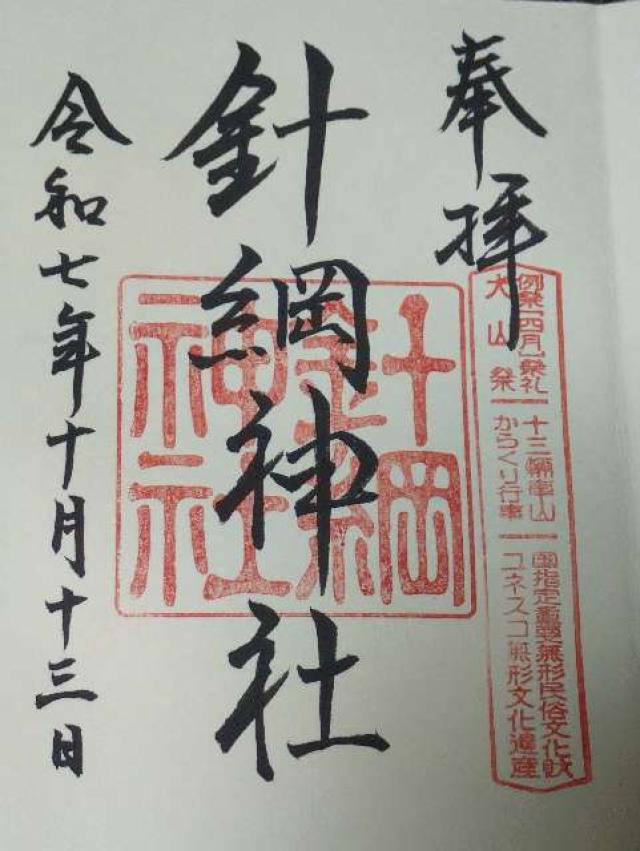 奉拝
例祭(四月)祭礼
犬山祭
十三輌車山
からくり行事
国指定重要無形民俗文化財
ユネスコ無形文化遺産
針綱神社
針綱神社
令和七年十月十三日